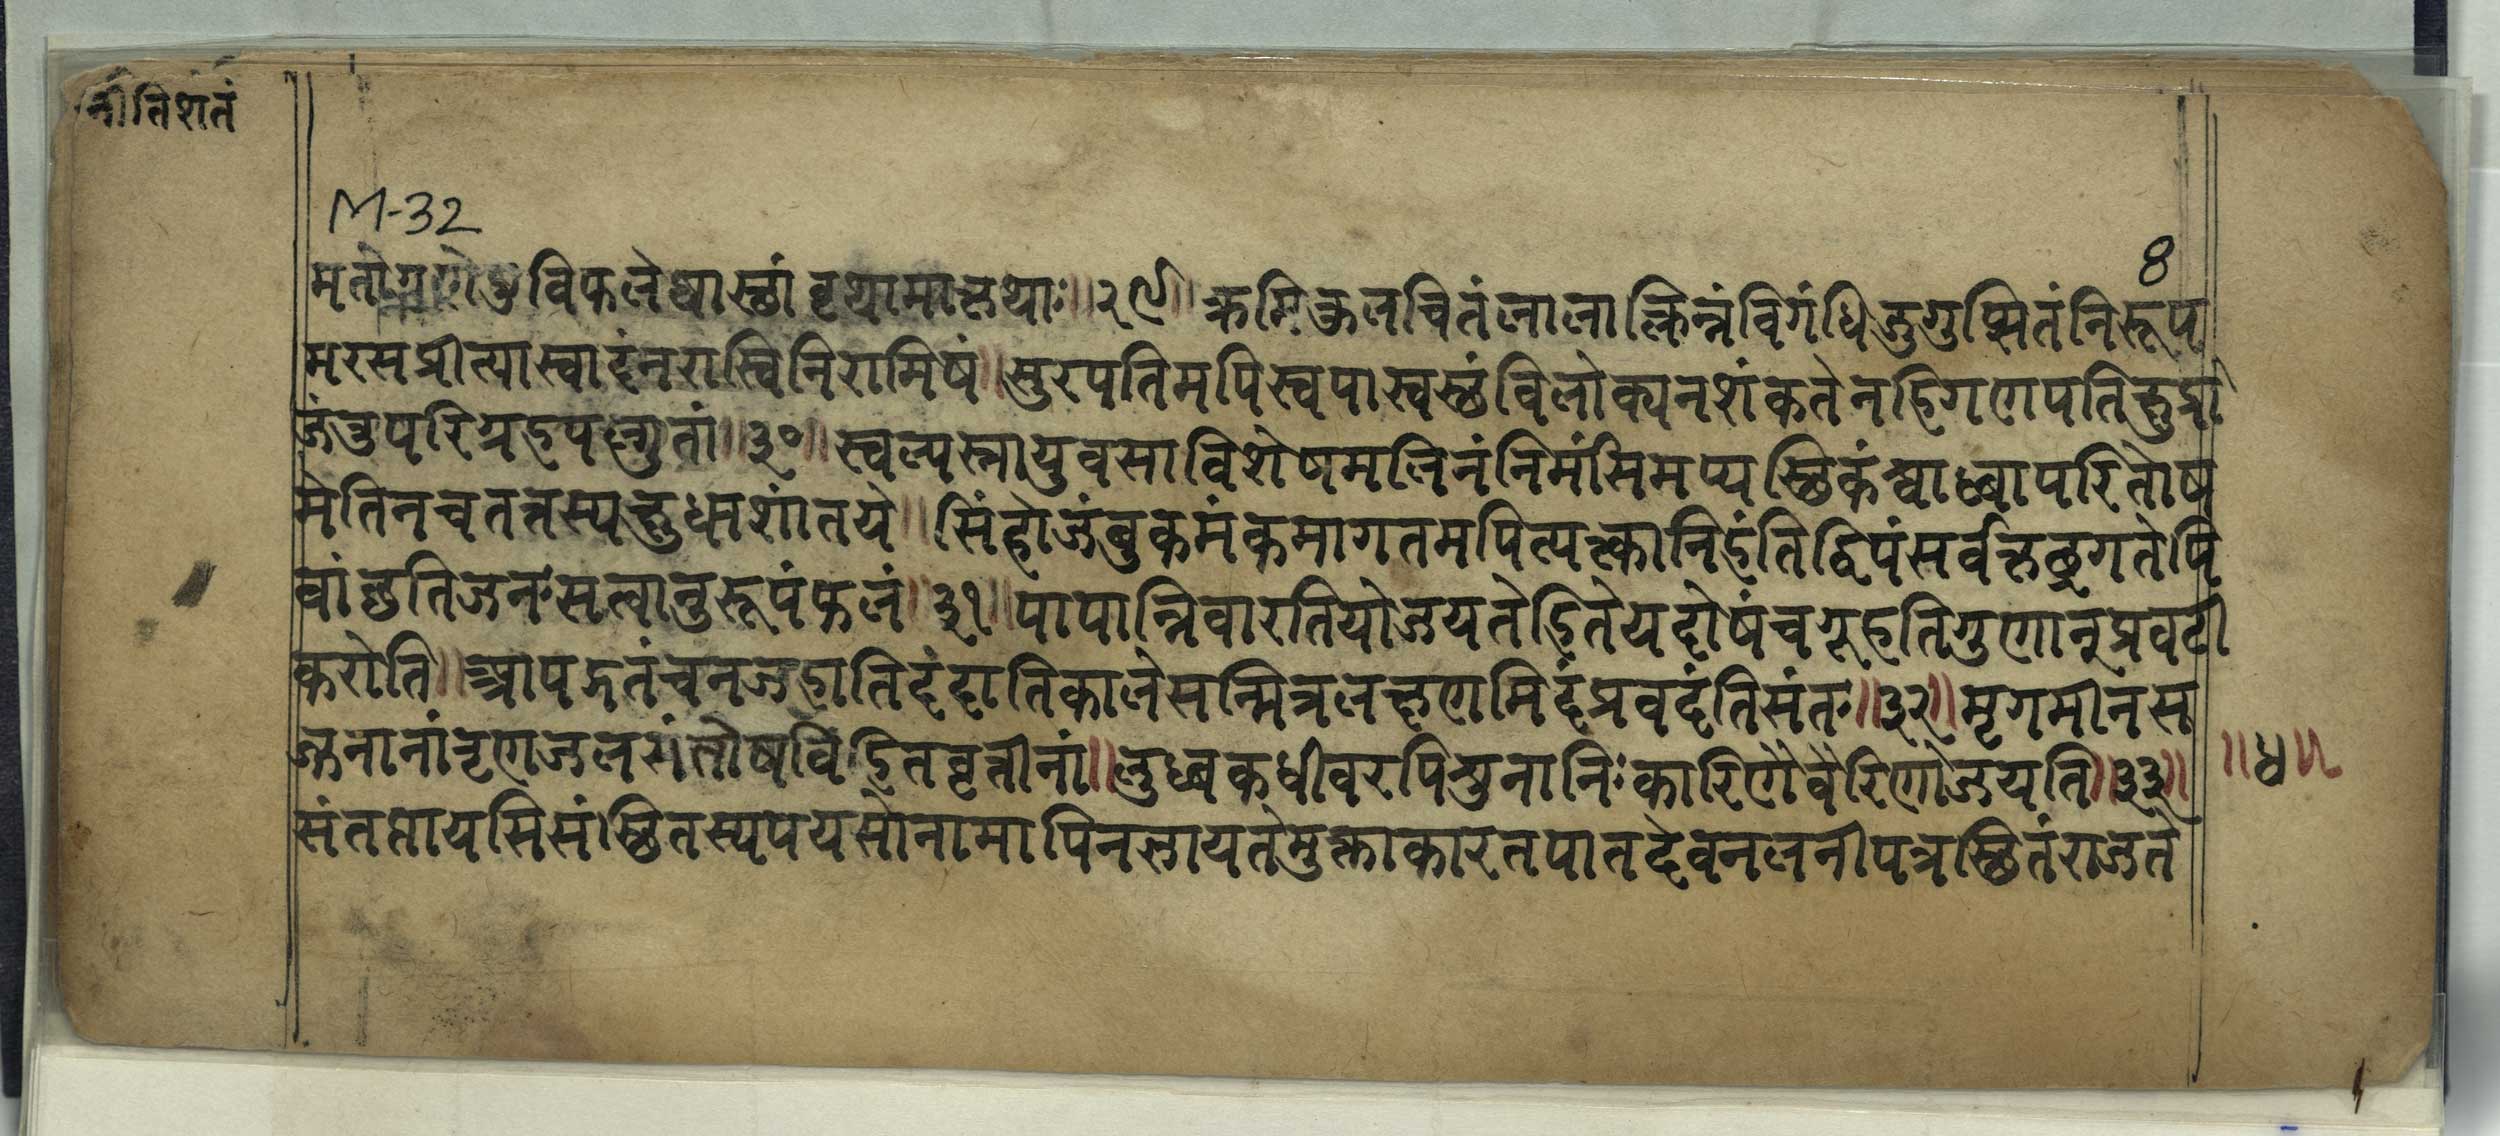 नीतिशतं
M-32
8
मतोगुणेषुविफलेष्वास्छांवृथामाकृथाः॥२९॥ कृमिकुलचितंलालाक्लिन्नंविगंधिजुगुप्सितंनिरूप
मरसप्रीत्यास्वादंनरास्छिनिरामिषं॥सुरपतिमपिस्वपास्वस्छंविलोक्यनशंकतेनहिगणपतिक्षुद्रो
जंतुपरिग्रहफल्गुतां॥३०॥स्वल्पस्नायुवसाविशेषमलिनंनिर्मांसमप्यस्छिकंश्वालब्ध्वापरितोष
मेतिनचतत्तस्यक्षुधाशांतये॥सिंहोजंबुकमंकमागतमपित्यक्त्वानिहंतिद्विपंसर्वकृछ्रगतेपि
वांछतिजनःसत्वानुरूपंफलं॥३१॥पापान्निवारतियोजयतेहितेयदोषंचगूहतिगुणान्प्रवटी
करोति॥आपद्गतंचनजहातिदंदातिकालेसन्मित्रलक्षणमिदंप्रवदंतिसंतः॥३२॥मृगमीनस
ज्जनानांतृणजलसंतोषविहितवृत्तीनां॥लुब्धकधीवरपिशुनानिःकारिणैवैरिणोजयति॥३३॥ ॥४॥
संतप्तायसिसंस्छितस्यपयसोनामापिनज्ञायतेमुक्ताकारतपातदेवनलनीपत्रस्छितंराजते